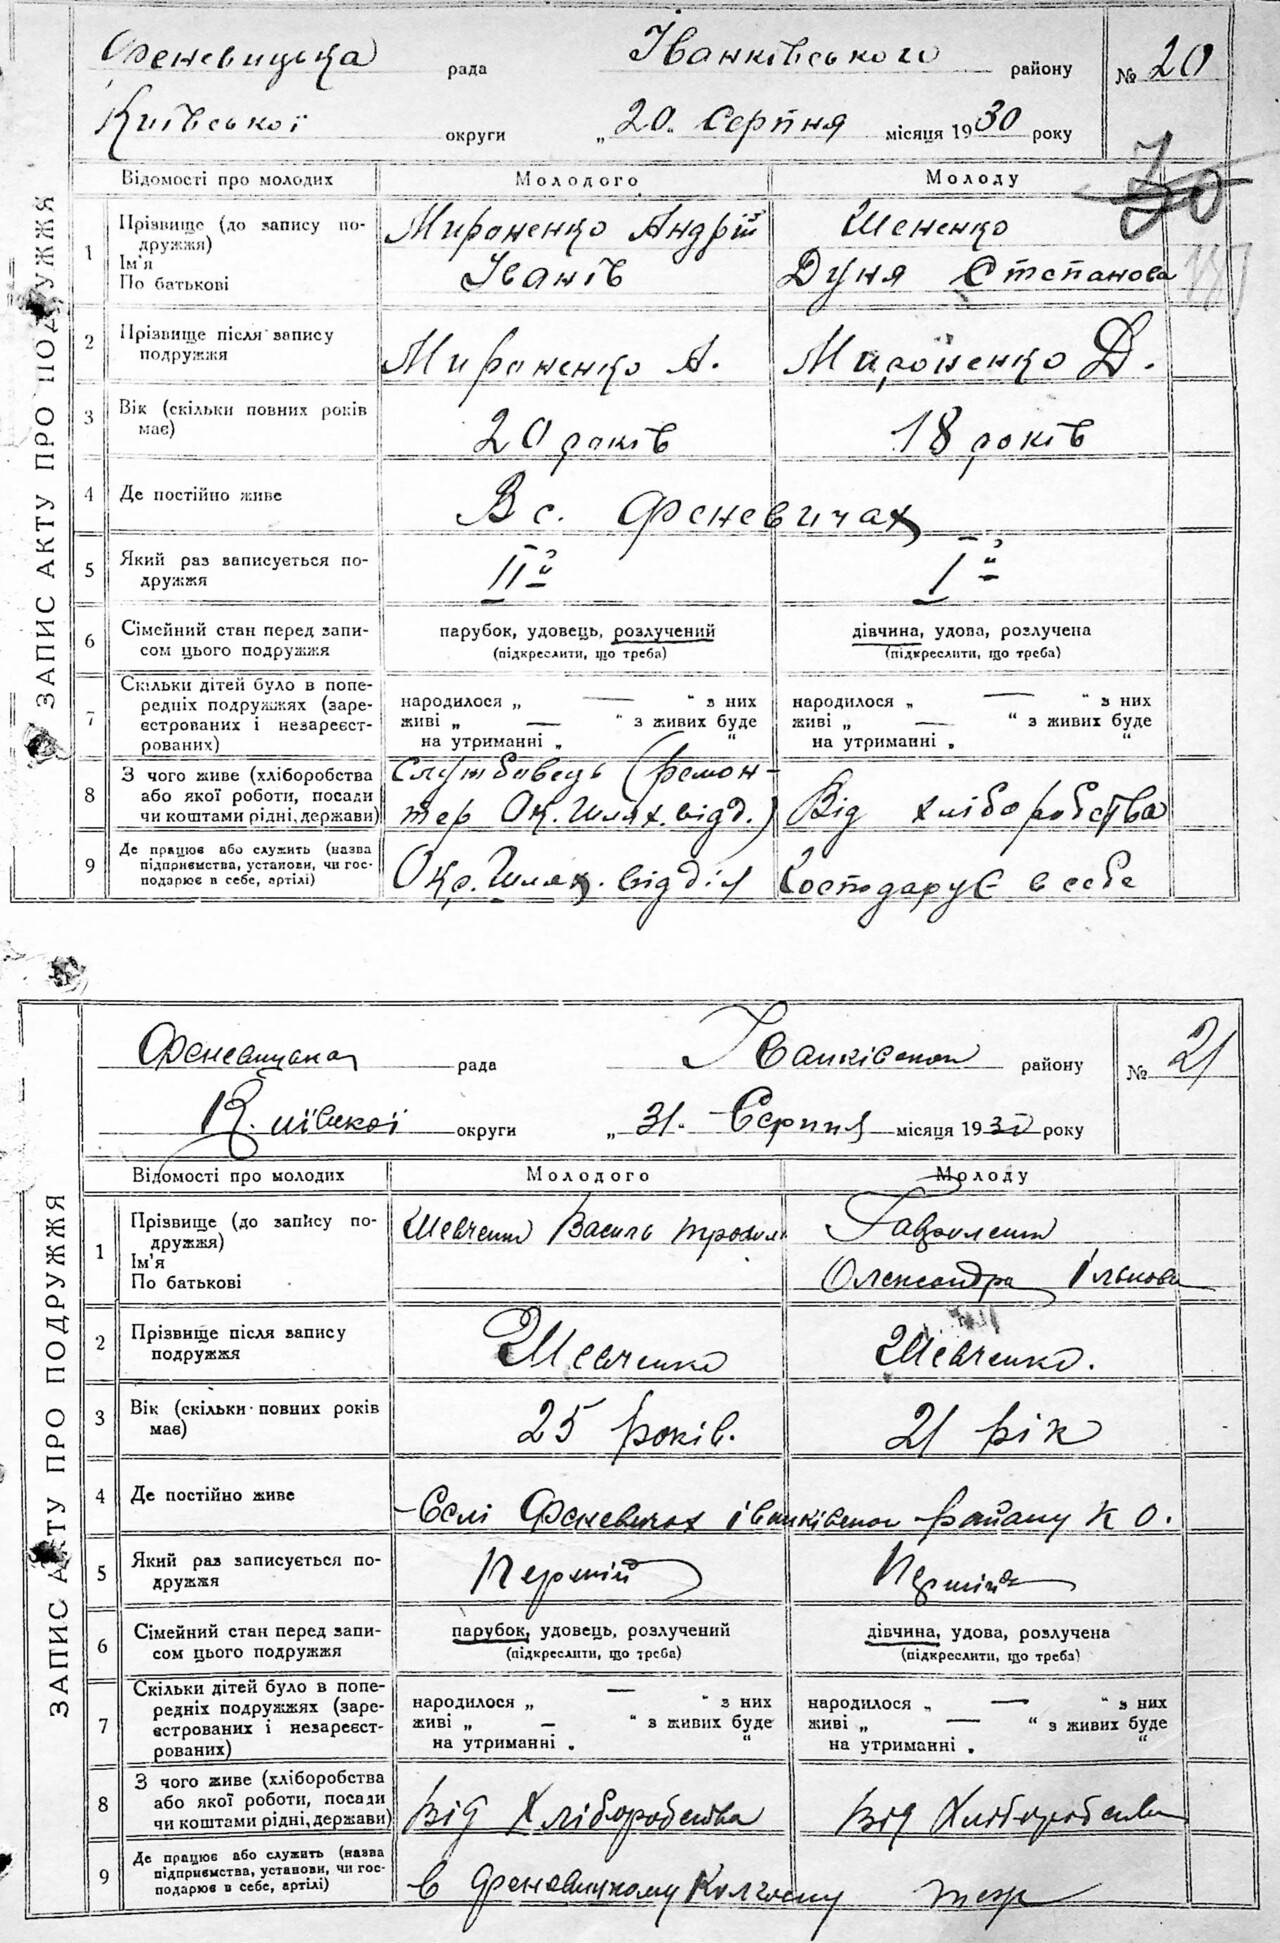 Феневицька рада Іванківського району № 20
Київської округи „20" серпня місяця 1930 року
ЗАПИС АКТУ ПРО ПОДРУЖЖЯ
Відомості про молодих Молодого Молоду
1 Прізвище (до запису по-
дружжя)
Ім'я
По батькові
Мироненко Андрій
Іванів
Шененко
Дуня Степанова
2 Прізвище після запису
подружжя
Мироненко А. Мироненко Д.
3 Вік (скільки повних років
має)
20 років 18 років
4 Де постійно живе В с. Феневичах
5 Який раз записується по-
дружжя
ІІ-й І-й
6 Сімейний стан перед запи-
сом цього подружжя
парубок, удовець, розлучений
(підкреслити, що треба)
дівчина, удова, розлучена
(підкреслити, що треба)
7 Скільки дітей було в попе-
редніх подружжях (заре-
єстрованих і незареєст-
рованих)
народилося „ — " з них
живі „ — " з живих буде
на утриманні „ "
народилося „ — з них
живі „ — " з живих буде
на утриманні „ "
8 З чого живе (хліборобства
або якої роботи, посади
чи коштами рідні, держави)
службовець (ремон-
тер Ок. Шлях. відд.)
Від хліборобства
9 Де працює або служить (назва
підприємства, установи, чи гос-
подарює в себе, артілі)
Окр. Шлях. відділ Господарує в себе
Феневицька рада Іванківської району № 21
Київської округи „31. Серпня місяця 1930 року
ЗАПИС АКТУ ПРО ПОДРУЖЖЯ
Відомості про молодих Молодого Молоду
1 Прізвище (до запису по-
дружжя)
Ім'я
По батькові
Шевченко Василь
Гавриленко
Олександра Ількова
2 Прізвище після запису
подружжя
Шевченко Шевченко.
3 Вік (скільки повних років
має)
25 років. 21 рік
4 Де постійно живе Селі Феневичах Іванківської району К О.
5 Який раз записується по-
дружжя
Перший Перший
6 Сімейний стан перед запи-
сом цього подружжя
парубок, удовець, розлучений
(підкреслити, що треба)
дівчина, удова, розлучена
(підкреслити, що треба)
7 Скільки дітей було в попе-
редніх подружжях (заре-
єстрованих і незареєст-
рованих)
народилося „ — " з них
живі „ — " з живих буде
на утриманні „ "
народилося „ — " з них
живі „ — " з живих буде
на утриманні „ "
8 З чого живе (хліборобства
або якої роботи, посади
чи коштами рідні, держави)
від Хліборобства від Хліборобства
9 Де працює або служить (назва
підприємства, установи, чи гос-
подарює в себе, артілі)
в Феневицкому Колгоспу теж